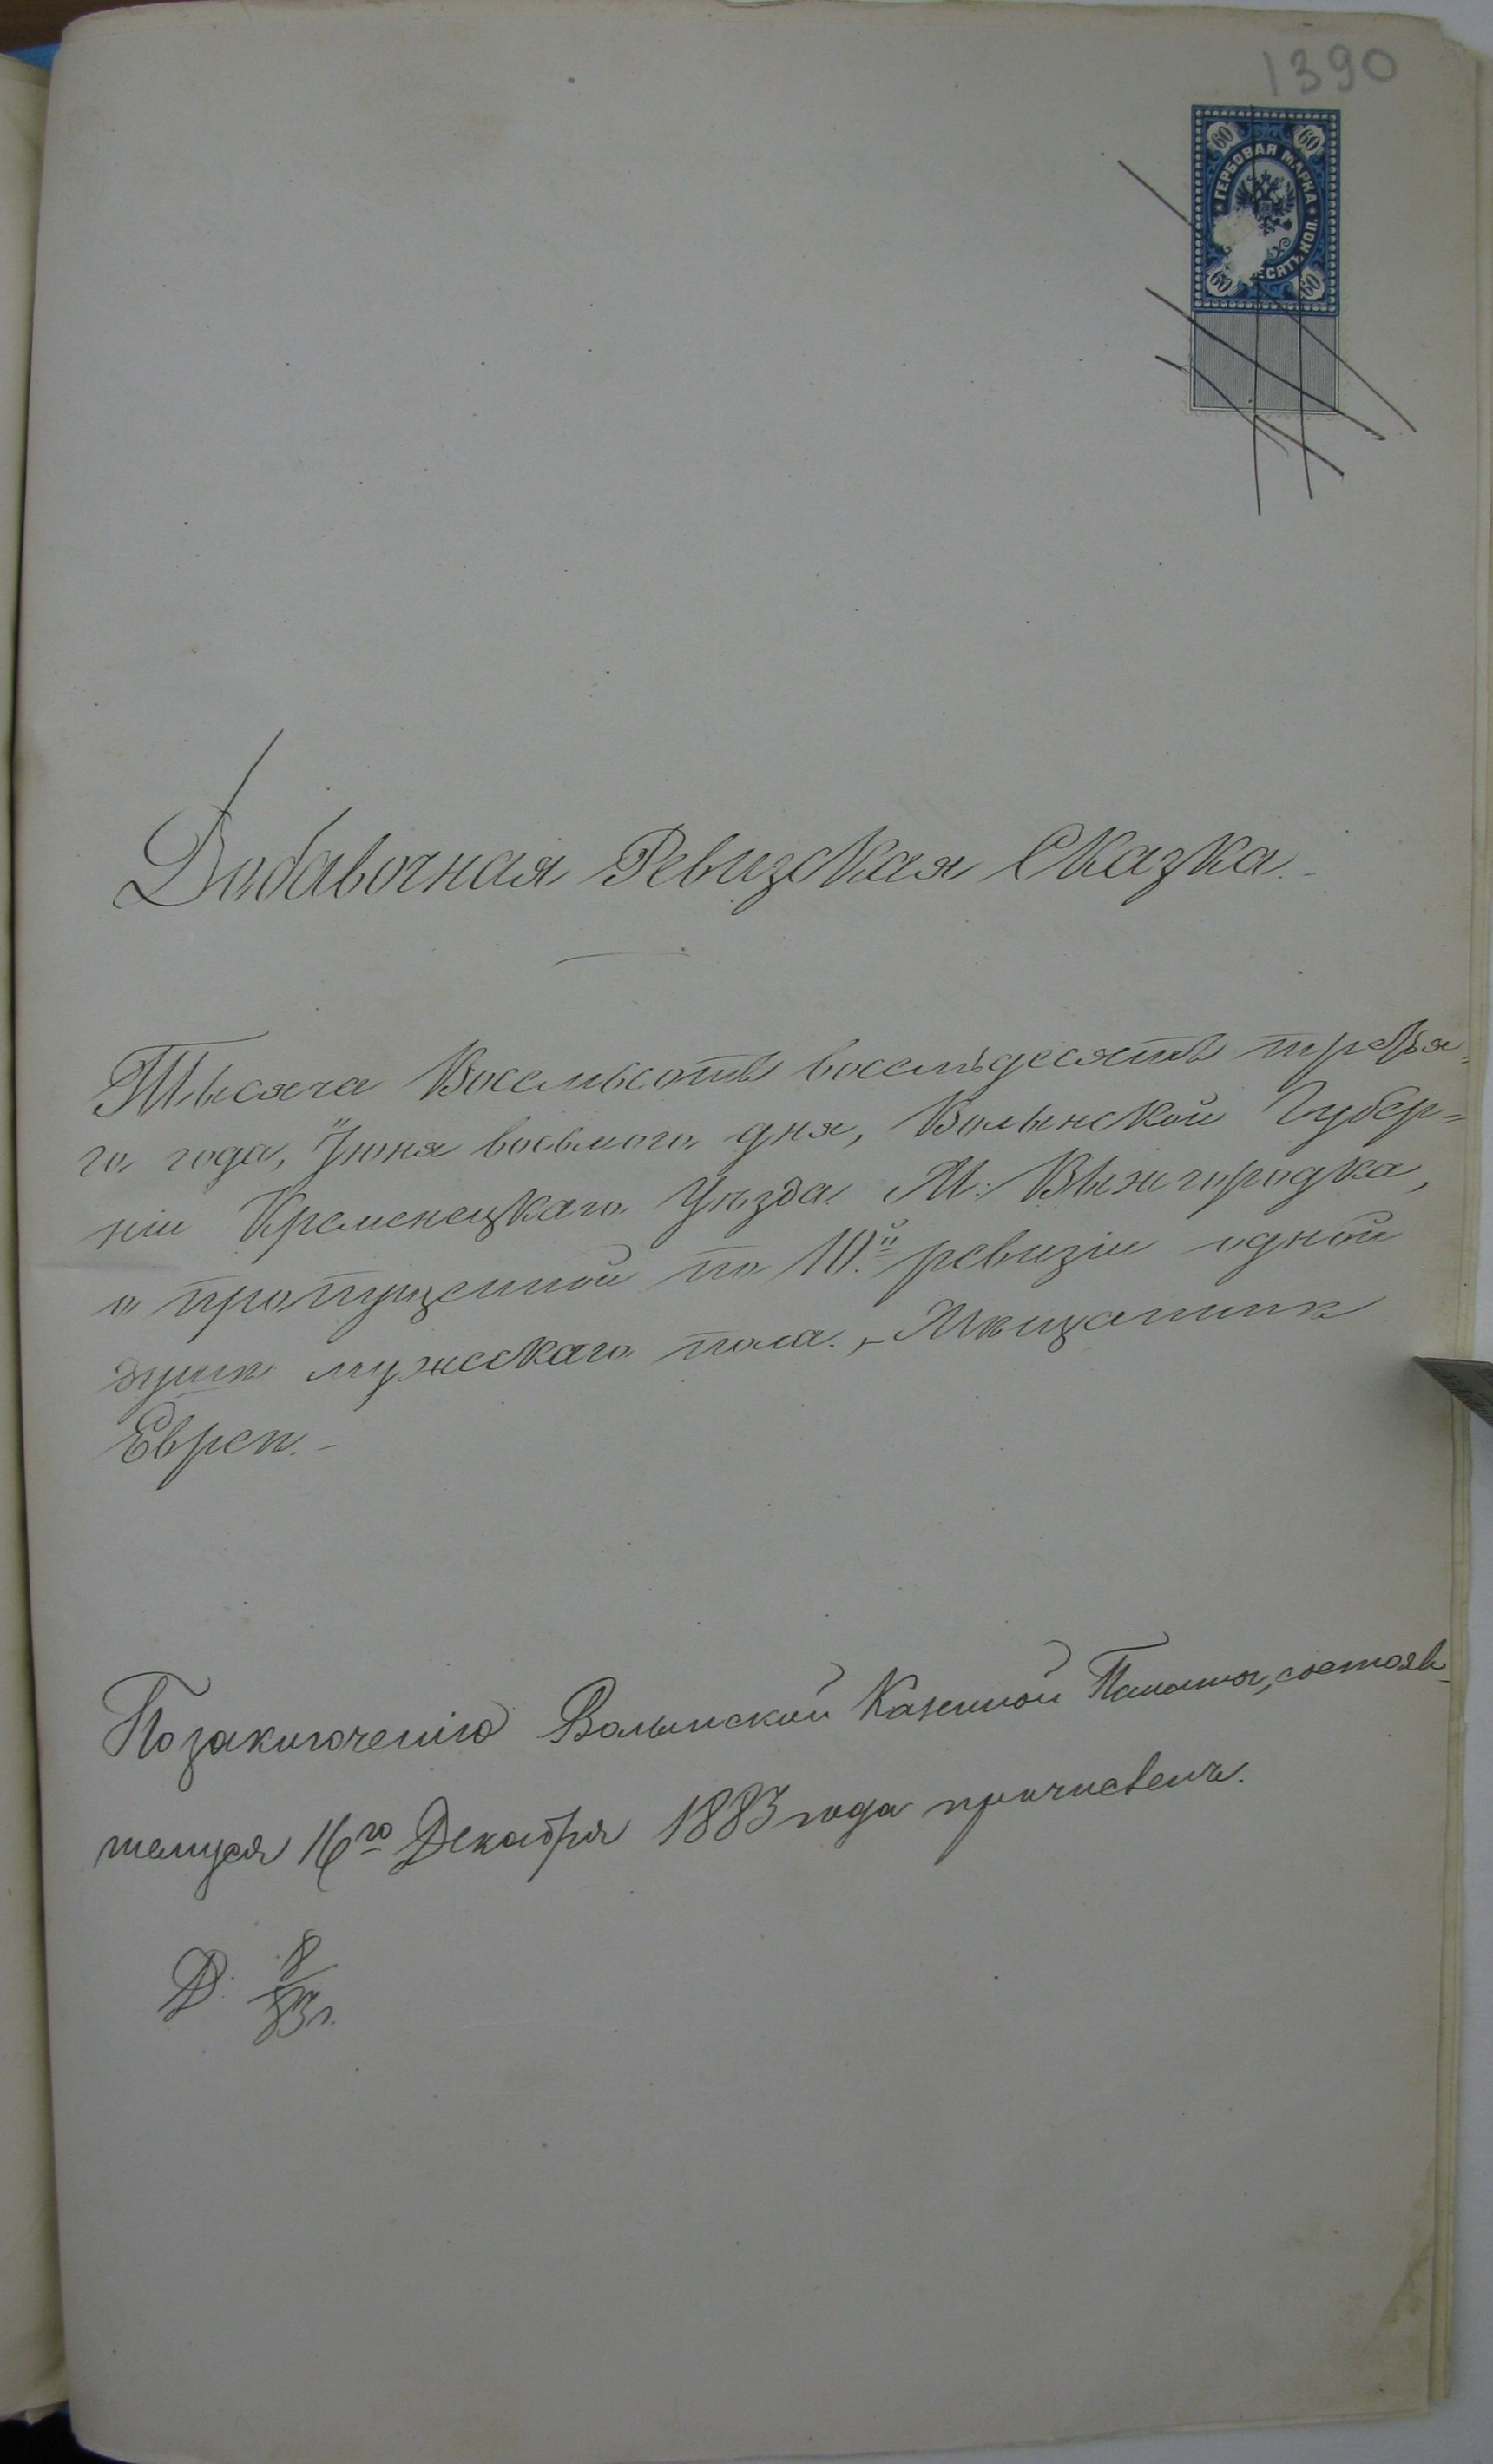 1390
60 60
ГЕРБОВАЯ МАРКА
ЕСЯТЬ КОП.
60 60
Добавочная Ревизская Сказка.
Тысяча Восемьсотъ восемьдесятъ третья=
го года, Іюня восьмого дня, Волынской Губер=
ніи Кременецкаго Уѣзда М: Вышгородка,
о пропущенной по 10.й ревизіи одной
душѣ мужескаго пола. - Мѣщанинѣ
Евреѣ. -
По заключенію Волынской Казенной Палаты, состояв-
шемуся 16го Декабря 1883 года причисленъ.
Д. 8
83 г.